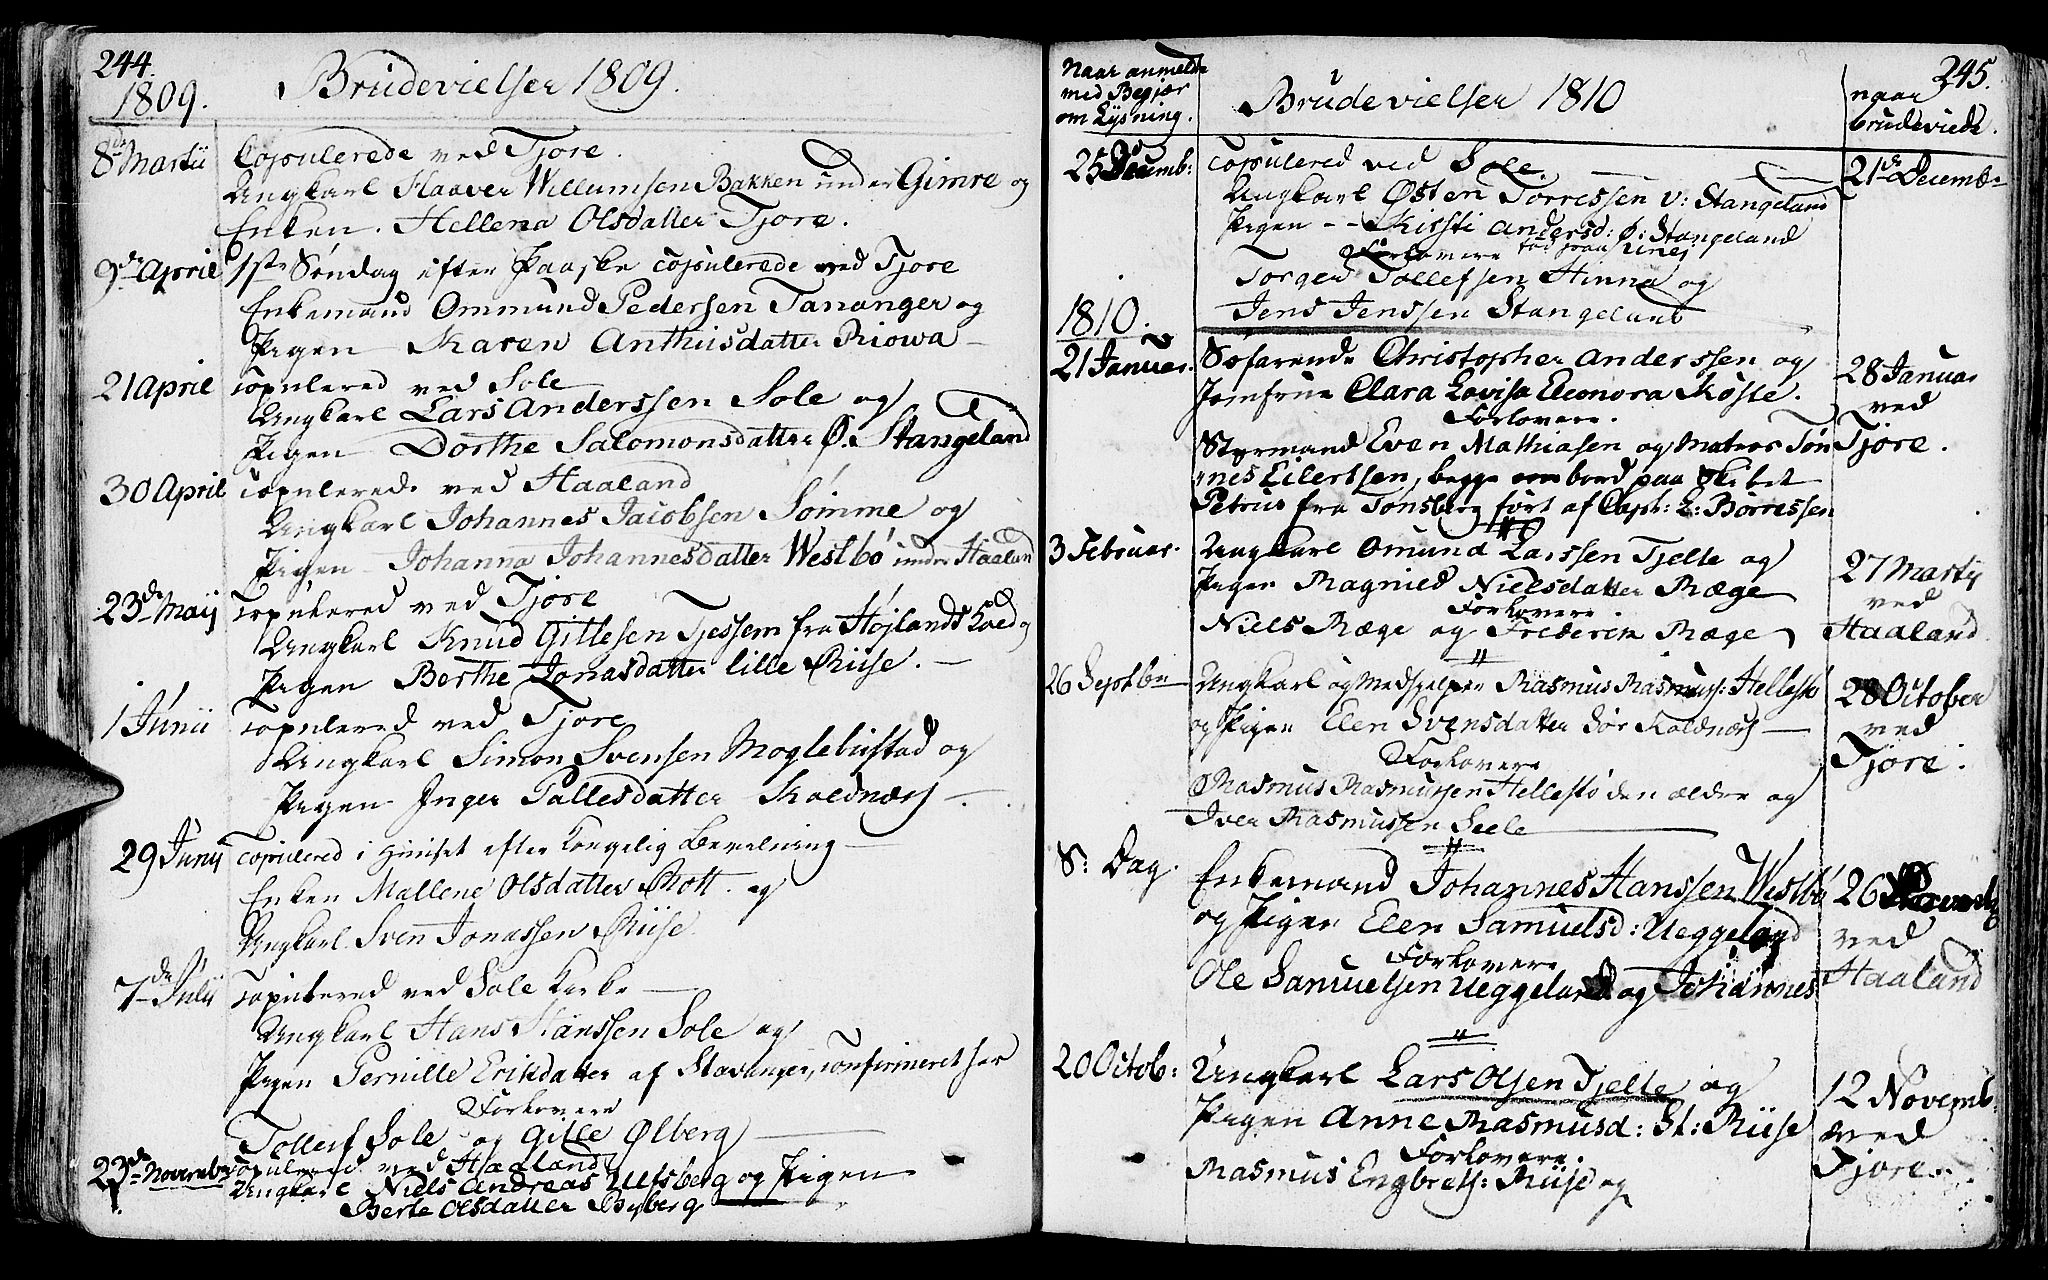 244.
1809.
Brudevielser 1809.
8de Martii Copulerede ved Tjore.
Ungkarl Haaver Willumsen Bakken under Gimre og
Enken. Hellena Olsdatter Tjore.
9de April 1ste Søndag efter Paaske copulerede ved Tjore
Enkemand Ommund Pedersen Tananger og
Pigen - Karen Anthusdatter Riowa -
21 April copulered ved Sole
Ungkarl Lars Anderssen Sole og
Pigen - Dorthe Salomonsdatter Ø. Stangeland
30 April copulerede ved Haaland
Ungkarl Johannes Jacobsen Sømme og
Pigen - Johanna Johannesdatter Westbø under Haaland
23de Maij copulered ved Tjore
Ungkarl Knud Gitlesen Tjessem fra Højlands og
Pigen Berthe Jonasdatter lille Riise. -
1 Junii copulered ved Tjore
Ungkarl Simon Svensen Moglebustad og
Pigen - Inger Pallesdatter Koldnæs -
29 Junij copulered i Huuset efter Kongelig Bevilning -
Enken Mallene Olsdatter Rott. og
Ungkarl Sven Jonassen Riise
7de Julij copulered ved Sole Kirke -
Ungkarl Hans Hanssen Sole og
Pigen Pernille Eriksdatter af Stavanger, confirmeret her
Forlovere
Tollef Sole og Gitle Ølberg -
23de Novembr copulered ved Haaland
Ungkarl Niels Andreas Ulfsberg og Pigen
Berte Olsdatter Byberg
Naar anmeldt
med Begjær
om Lysning.
Brudevielser 1810
245.
naar
brudeviede.
25 Decemb: Copulered ved Sole. 21de Decemb:
Ungkarl Østen Torressen v: Stangeland
Pigen - - Kirsti Andersd: Ø: Stangeland
Forlovere
Torger Tollefsen Hinna og
Jens Jenssen Stangeland
1810.
21 Januar. Søfarende Christopher Anderssen og 28 Januar
Jomfrue Clara Lovisa Eleonora Køste. ved
Forlovere.
Styrmand Even Mathiasen og Matros Tøn Tjore.
nes Eilertsen, begge ombord paa Skibet
Petrus fra Tønsberg ført af Capt: L: Børressen
3 Februar. Ungkarl Omund Larssen Tjelte og 27 Martij
Pigen Magnild Nielsdatter Ræge ved
Forlovere.
Niels Ræge og Frederik Ræge Haaland
26 Septbr Ungkarl og Medhjelper Rasmus Rasmuss: Hellestø 28 October
og Pigen Elen Svensdatter Sør Koldnæs - ved
Forlovere Tjore.
Rasmus Rasmussen Hellestø den ældre og
Iver Rasmussen Seele
S: Dag. Enkemand Johannes Hanssen Westbø 26
og Pigen Elen Samuelsd: Ueggeland ved
Forlovere
Ole Samuelsen Ueggeland og Johannes Haaland
20 Octob: Ungkarl Lars Olsen Tjelte og 12 Novemb:
Pigen Anne Rasmusd: St: Riise ved
Forlovere.
Rasmus Engbrets: Riise og Tjore.